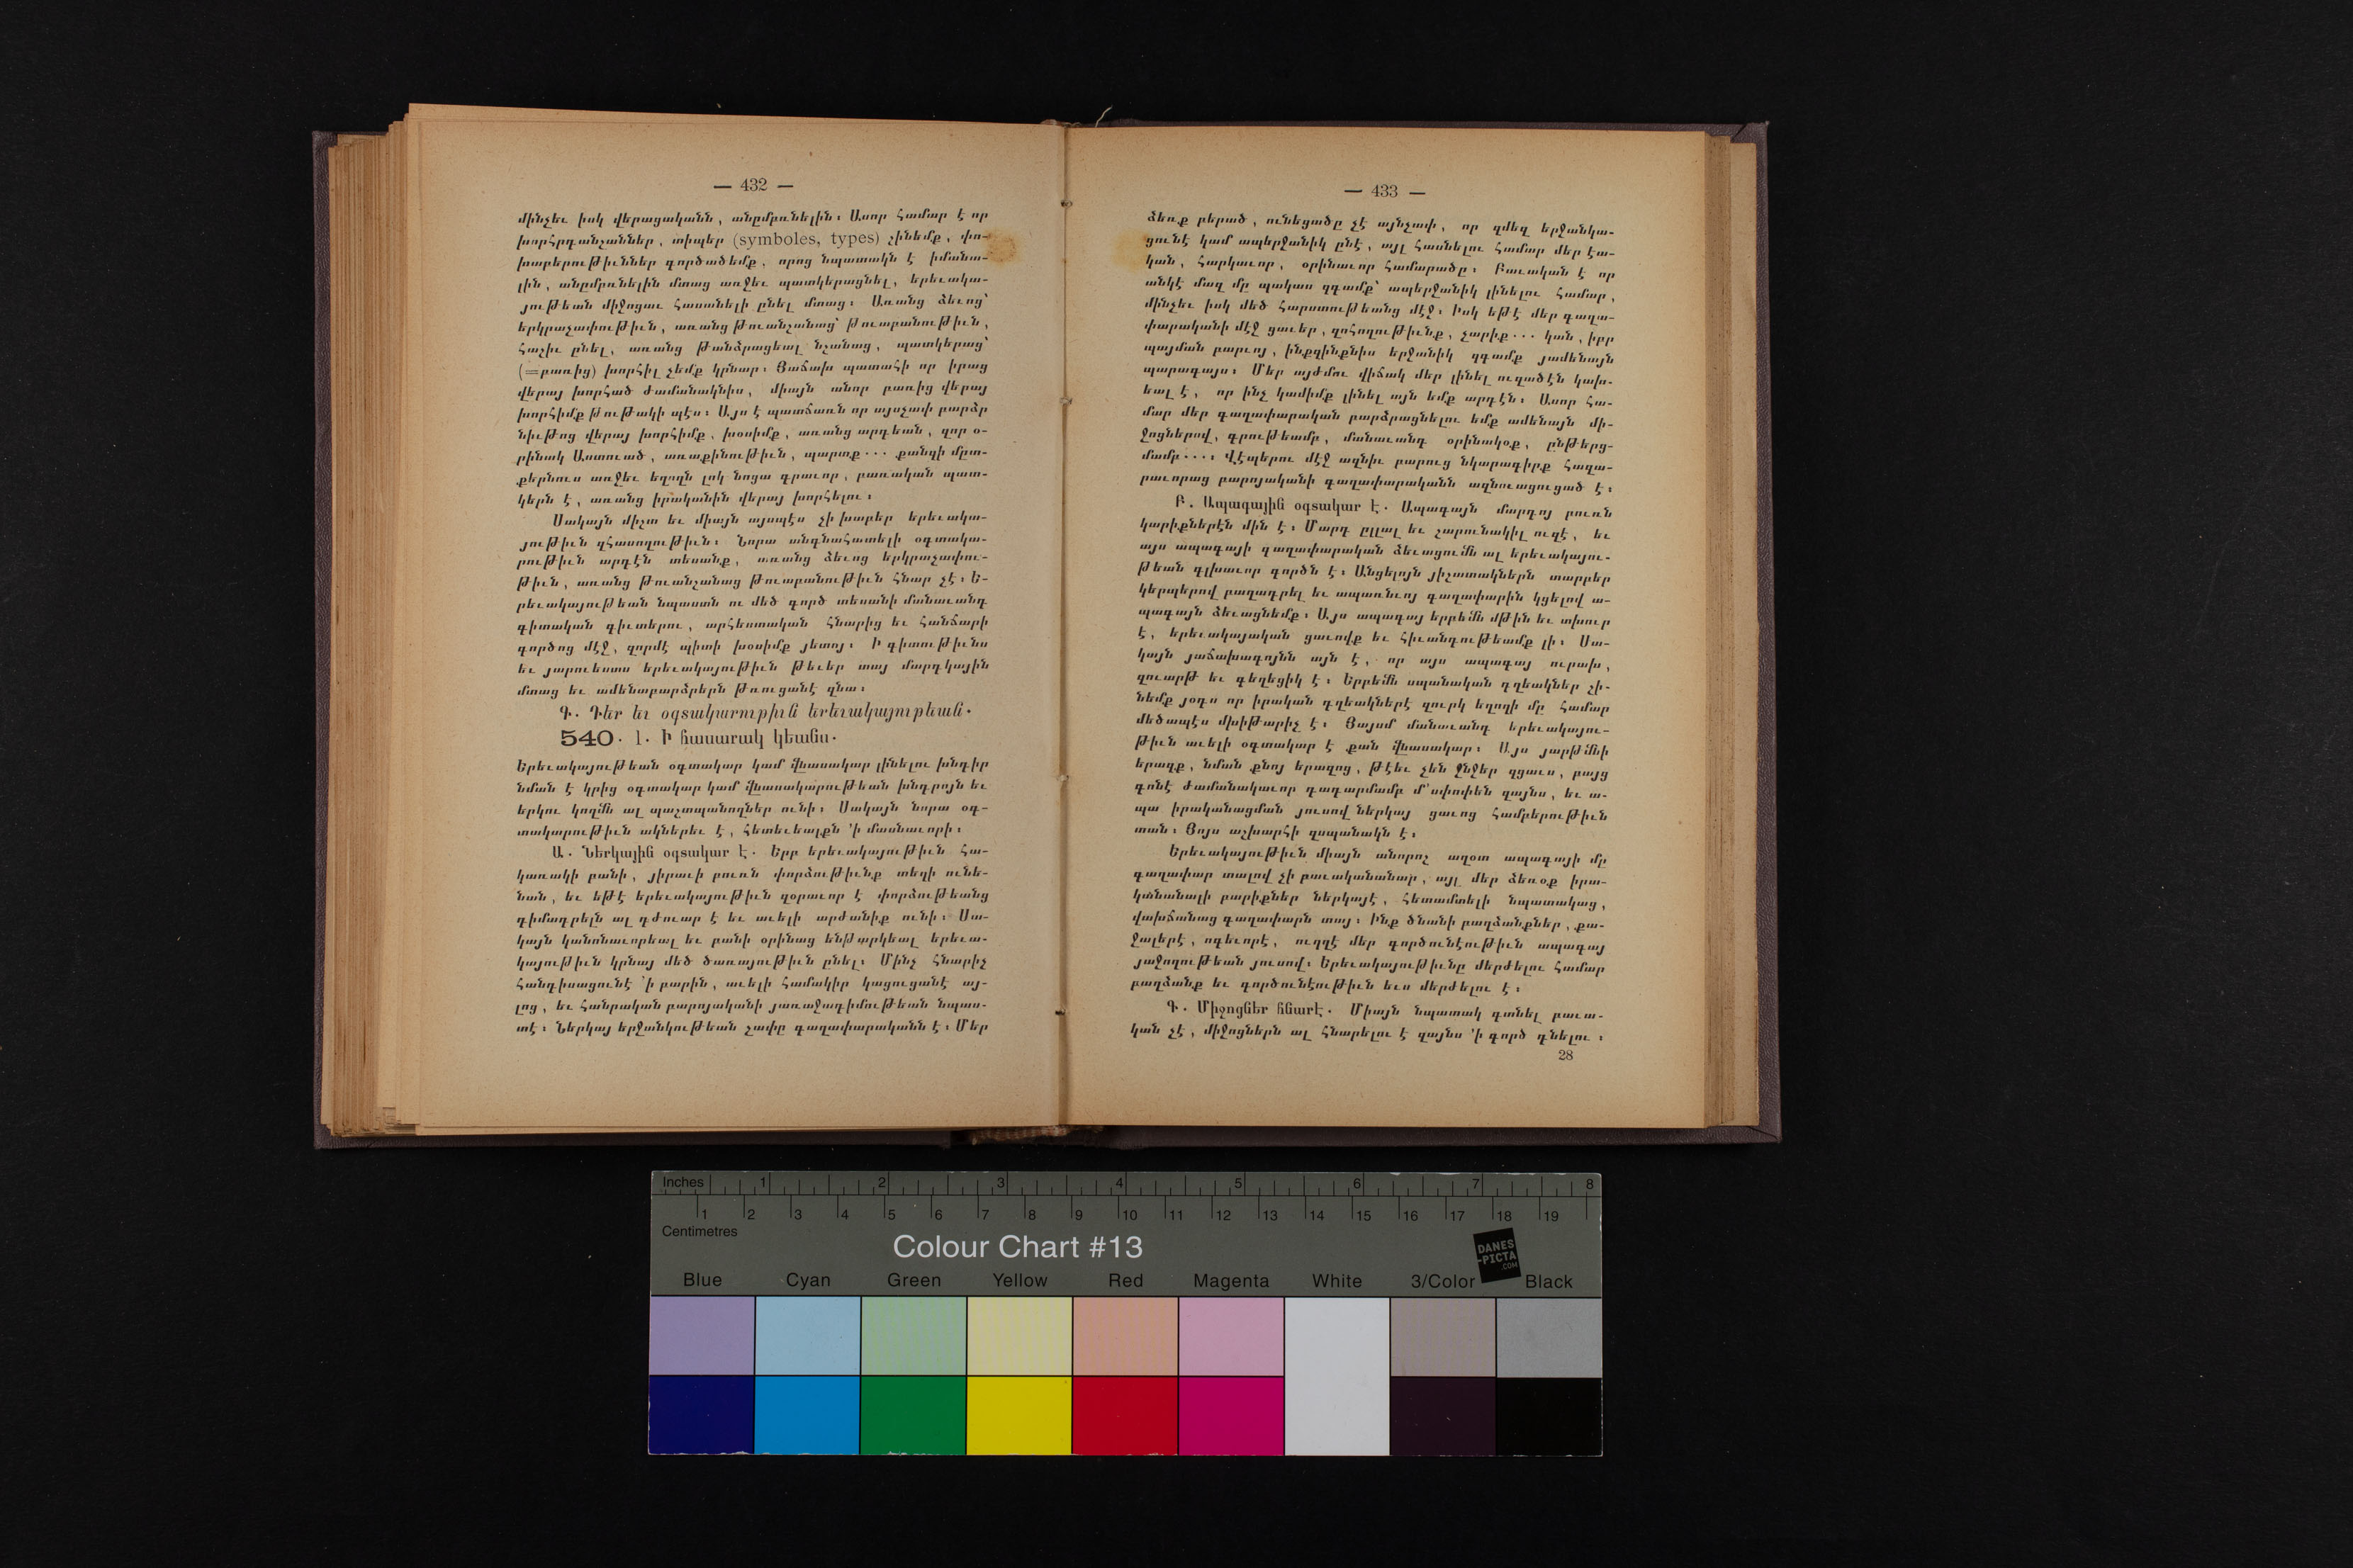 — 432 —
մինչեւ իսկ վերացականն, անըմբռնելին։ Ասոր համար է որ
խորհրդանշաններ, տիպեր (symboles, types) շինեմք, փո-
խաբերութիւններ գործածեմք, որոց նպատակն է իմանա-
լին, անըմբռնելին մտաց առջեւ պատկերացնել, երեւակա-
յութեան միջոցաւ հասանելի ընել մտաց։ Առանց ձեւոց՝
երկրաչափութիւն, առանց թուանշանաց՝ թուաբանութիւն,
հաշիւ ընել, առանց թանձրացեալ նշանաց, պատկերաց՝
(=բառից) խորհիլ չեմք կրնար։ Յաճախ պատահի որ իրաց
վերայ խորհած ժամանակնիս, միայն անոր բառից վերայ
խորհիմք թութակի պէս։ Այս է պատճառն որ այսչափ բարձր
նիւթոց վերայ խորհիմք, խօսիմք, առանց արդեան, զոր օ-
րինակ Աստուած, առաքինութիւն, պարտք... քանզի մըտ-
քերնուս առջեւ եղողն լոկ նոցա գրաւոր, բառական պատ-
կերն է, առանց իրականին վերայ խորհելու։
Սակայն միշտ եւ միայն այսպէս չի խաբեր երեւակա-
յութիւն զհասողութիւն։ Նորա անգնահատելի օգտակա-
րութիւն արդէն տեսանք, առանց ձեւոց երկրաչափու-
թիւն, առանց թուանշանաց թուաբանութիւն հնար չէ։ Ե-
րեւակայութեան նպաստն ու մեծ գործ տեսանի մանաւանդ
գիտական գիւտերու, արհեստական հնարից եւ հանճարի
գործոց մէջ, զորմէ պիտի խօսիմք յետոյ։ Ի գիտութիւնս
եւ յարուեստս երեւակայութիւն թեւեր տայ մարդկային
մտաց եւ ամենաբարձրերն թռուցանէ զնա։
Գ. Դեր եւ օգտակարութիւն երեւակայութեան.
540. 1. Ի հասարակ կեանս.
Երեւակայութեան օգտակար կամ վնասակար լինելու խնդիր
նման է կրից օգտակար կամ վնասակարութեան խնդրոյն եւ
երկու կողմն ալ պաշտպանողներ ունի։ Սակայն նորա օգ-
տակարութիւն ակներեւ է, հետեւեալքն ՚ի մասնաւորի։
Ա. Ներկային օգտակար է. Երբ երեւակայութիւն հա-
կառակի բանի, յիրաւի բուռն փորձութիւնք տեղի ունե-
նան, եւ եթէ երեւակայութիւն զօրաւոր է փորձութեանց
դիմադրելն ալ դժուար է եւ աւելի արժանիք ունի։ Սա-
կայն կանոնաւորեալ եւ բանի օրինաց ենթարկեալ երեւա-
կայութիւն կրնայ մեծ ծառայութիւն ընել։ Մինչ հնարիչ
հանդիսացունէ ՚ի բարին, աւելի համակիր կացուցանէ այ-
լոց, եւ հանրական բարոյականի յառաջադիմութեան նպաս-
տէ։ Ներկայ երջանկութեան չափը գաղափարականն է։ Մեր
— 433 —
ձեռք բերած, ունեցածը չէ այնչափ, որ զմեզ երջանկա-
ցունէ կամ ապերջանիկ ընէ, այլ հասնելու համար մեր էա-
կան, հարկաւոր, օրինաւոր համարածը։ Բաւական է որ
անկէ մազ մը պակաս զգամք՝ ապերջանիկ լինելու համար,
մինչեւ իսկ մեծ հարստութեանց մէջ։ Իսկ եթէ մեր գաղա-
փարականի մէջ ցաւեր, զոհողութիւնք, չարիք... կան, իբր
պայման բարւոյ, ինքզինքնիս երջանիկ զգամք յամենայն
պարագայս։ Մեր այժմու վիճակ մեր լինել ուզածէն կախ-
եալ է, որ ինչ կամիմք լինել այն եմք արդէն։ Ասոր հա-
մար մեր գաղափարական բարձրացնելու եմք ամենայն մի-
ջոցներով, գրութեամբ, մանաւանդ օրինակօք, ընթերց-
մամբ...։ Վէպերու մէջ ազնիւ բարուց նկարագիրք հազա-
րաւորաց բարոյականի գաղափարականն ազնուացուցած է։
Բ. Ապագային օգտակար է. Ապագայն մարդոյ բուռն
կարիքներէն մին է։ Մարդ ըլլալ եւ շարունակիլ ուզէ, եւ
այս ապագայի գաղափարական ձեւացումն ալ երեւակայու-
թեան գլխաւոր գործն է։ Անցելոյն յիշատակներն տարբեր
կերպերով բաղադրել եւ ապառնւոյ գաղափարին կցելով ա-
պագայն ձեւացնեմք։ Այս ապագայ երբեմն մթին եւ տխուր
է, երեւակայական ցաւովք եւ հիւանդութեամք լի։ Սա-
կայն յաճախագոյնն այն է, որ այս ապագայ ուրախ,
զուարթ եւ գեղեցիկ է։ Երբեմն սպանական դղեակներ շի-
նեմք յօդս որ իրական դղեակներէ զուրկ եղողի մը համար
մեծապէս մխիթարիչ է։ Յայսմ մանաւանդ երեւակայու-
թիւն աւելի օգտակար է քան վնասակար։ Այս յարթմնի
երազք, նման քնոյ երազոց, թէեւ չեն ջնջեր զցաւս, բայց
գոնէ ժամանակաւոր դադարմամբ մ՚ափոփեն զայնս, եւ ա-
պա իրականացման յուսով ներկայ ցաւոց համբերութիւն
տան։ Յոյս աշխարհի զսպանակն է։
Երեւակայութիւն միայն անորոշ աղօտ ապագայի մը
գաղափար տալով չի բաւականանար, այլ մեր ձեռօք իրա-
կանանալի բարիքներ ներկայէ, հետամտելի նպատակաց,
վախճանաց գաղափարն տայ։ Ինք ծնանի բաղձանքներ, քա-
ջալերէ, ոգեւորէ, ուղղէ մեր գործունէութիւն ապագայ
յաջողութեան յուսով։ Երեւակայութիւնը մերժելու համար
բաղձանք եւ գործունէութիւն եւս մերժելու է։
Գ. Միջոցներ հնարէ. Միայն նպատակ գտնել բաւա-
կան չէ, միջոցներն ալ հնարելու է զայնս ՚ի գործ դնելու։
28
Inches 1 2 3 4 5 6 7 8
1 2 3 4 5 6 7 8 9 10 11 12 13 14 15 16 17 18 19
Centimetres
Colour Chart #13
DANES
-PICTA
.COM
Blue Cyan Green Yellow Red Magenta White 3/Color Black